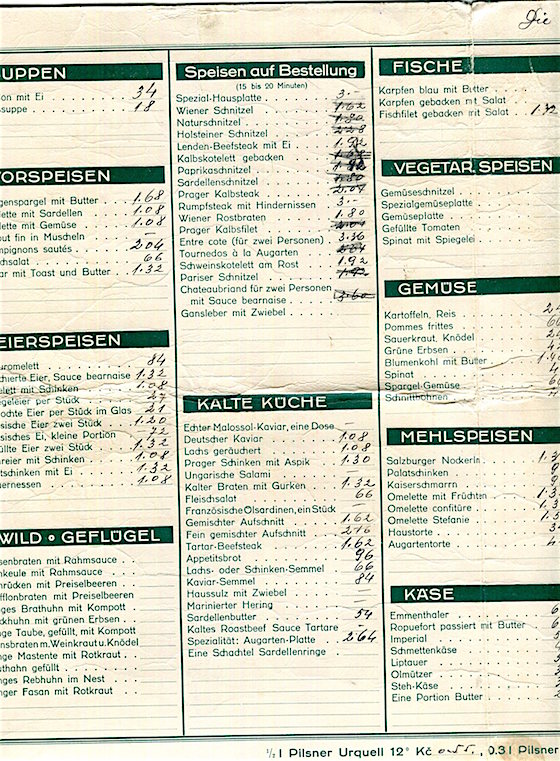 Die
UPPEN
on mit Ei 34
suppe 18
ORSPEISEN
genspargel mit Butter 1.68
lette mit Sardellen 1.08
lette mit Gemüse 1.08
out fin in Muscheln —
mpignons sautés 2.04
chsalat 66
ar mit Toast und Butter 1.32
EIERSPEISEN
uromelett 84
chierte Eier, Sauce bearnaise 1.32
elett mit Schinken 1.08
egeleier per Stück 27
ochte Eier per Stück im Glas 21
sische Eier zwei Stück 1.20
sisches Ei, kleine Portion 72
üllte Eier zwei Stück 1.32
reier mit Schinken 1.08
tschinken mit Ei 1.32
uernessen 1.08
WILD • GEFLÜGEL
senbraten mit Rahmsauce
hkeule mit Rahmsauce
hrücken mit Preiselbeeren
fflonbraten mit Preiselbeeren
ges Brathuhn mit Kompott
ckhuhn mit grünen Erbsen
nge Taube, gefüllt, mit Kompott
nsbraten m. Weinkraut u. Knödel
nge Mastente mit Rotkraut
uthahn gefüllt
nges Rebhuhn im Nest
nger Fasan mit Rotkraut
Speisen auf Bestellung
(15 bis 20 Minuten)
Spezial-Hausplatte 3.-
Wiener Schnitzel 1.62
Naturschnitzel 1.80
Holsteiner Schnitzel 2.28
Lenden-Beefsteak mit Ei
Kalbskotelett gebacken
Paprikaschnitzel
Sardellenschnitzel 1.80
Prager Kalbsteak 2.04
Rumpfsteak mit Hindernissen 3.-
Wiener Rostbraten 1.80
Prager Kalbsfilet 2.04
Entre cote (für zwei Personen) 3.36
Tournedos à la Augarten
Schweinskotelett am Rost 1.92
Pariser Schnitzel 1.92
Chateaubriand für zwei Personen
mit Sauce bearnaise 3.60
Gansleber mit Zwiebel
KALTE KÜCHE
Echter Malossol-Kaviar, eine Dose
Deutscher Kaviar 1.08
Lachs geräuchert 1.08
Prager Schinken mit Aspik 1.30
Ungarische Salami —
Kalter Braten mit Gurken 1.32
Fleischsalat 66
Französische Ölsardinen, ein Stück —
Gemischter Aufschnitt 1.62
Fein gemischter Aufschnitt 2.16
Tartar-Beefsteak 1.62
Appetitsbrot 96
Lachs- oder Schinken-Semmel 66
Kaviar-Semmel 84
Haussulz mit Zwiebel —
Marinierter Hering —
Sardellenbutter 54
Kaltes Roastbeef Sauce Tartare
Spezialität: Augarten-Platte 2.64
Eine Schachtel Sardellenringe
FISCHE
Karpfen blau mit Butter
Karpfen gebacken mit Salat
Fischfilet gebacken mit Salat 1.32
VEGETAR. SPEISEN
Gemüseschnitzel
Spezialgemüseplatte
Gemüseplatte
Gefüllte Tomaten
Spinat mit Spiegelei
GEMÜSE
Kartoffeln, Reis
Pommes frittes
Sauerkraut, Knödel
Grüne Erbsen
Blumenkohl mit Butter
Spinat
Spargel-Gemüse
Schnittbohnen
MEHLSPEISEN
Salzburger Nockerln
Palatschinken
Kaiserschmarrn
Omelette mit Früchten
Omelette confitüre
Omelette Stefanie
Haustorte
Augartentorte
KÄSE
Emmenthaler
Ropuefort passiert mit Butter
Imperial
Schmettenkäse
Liptauer
Olmützer
Steh-Käse
Eine Portion Butter
½ l Pilsner Urquell 12° Kč 0.55, 0.3 l Pilsner